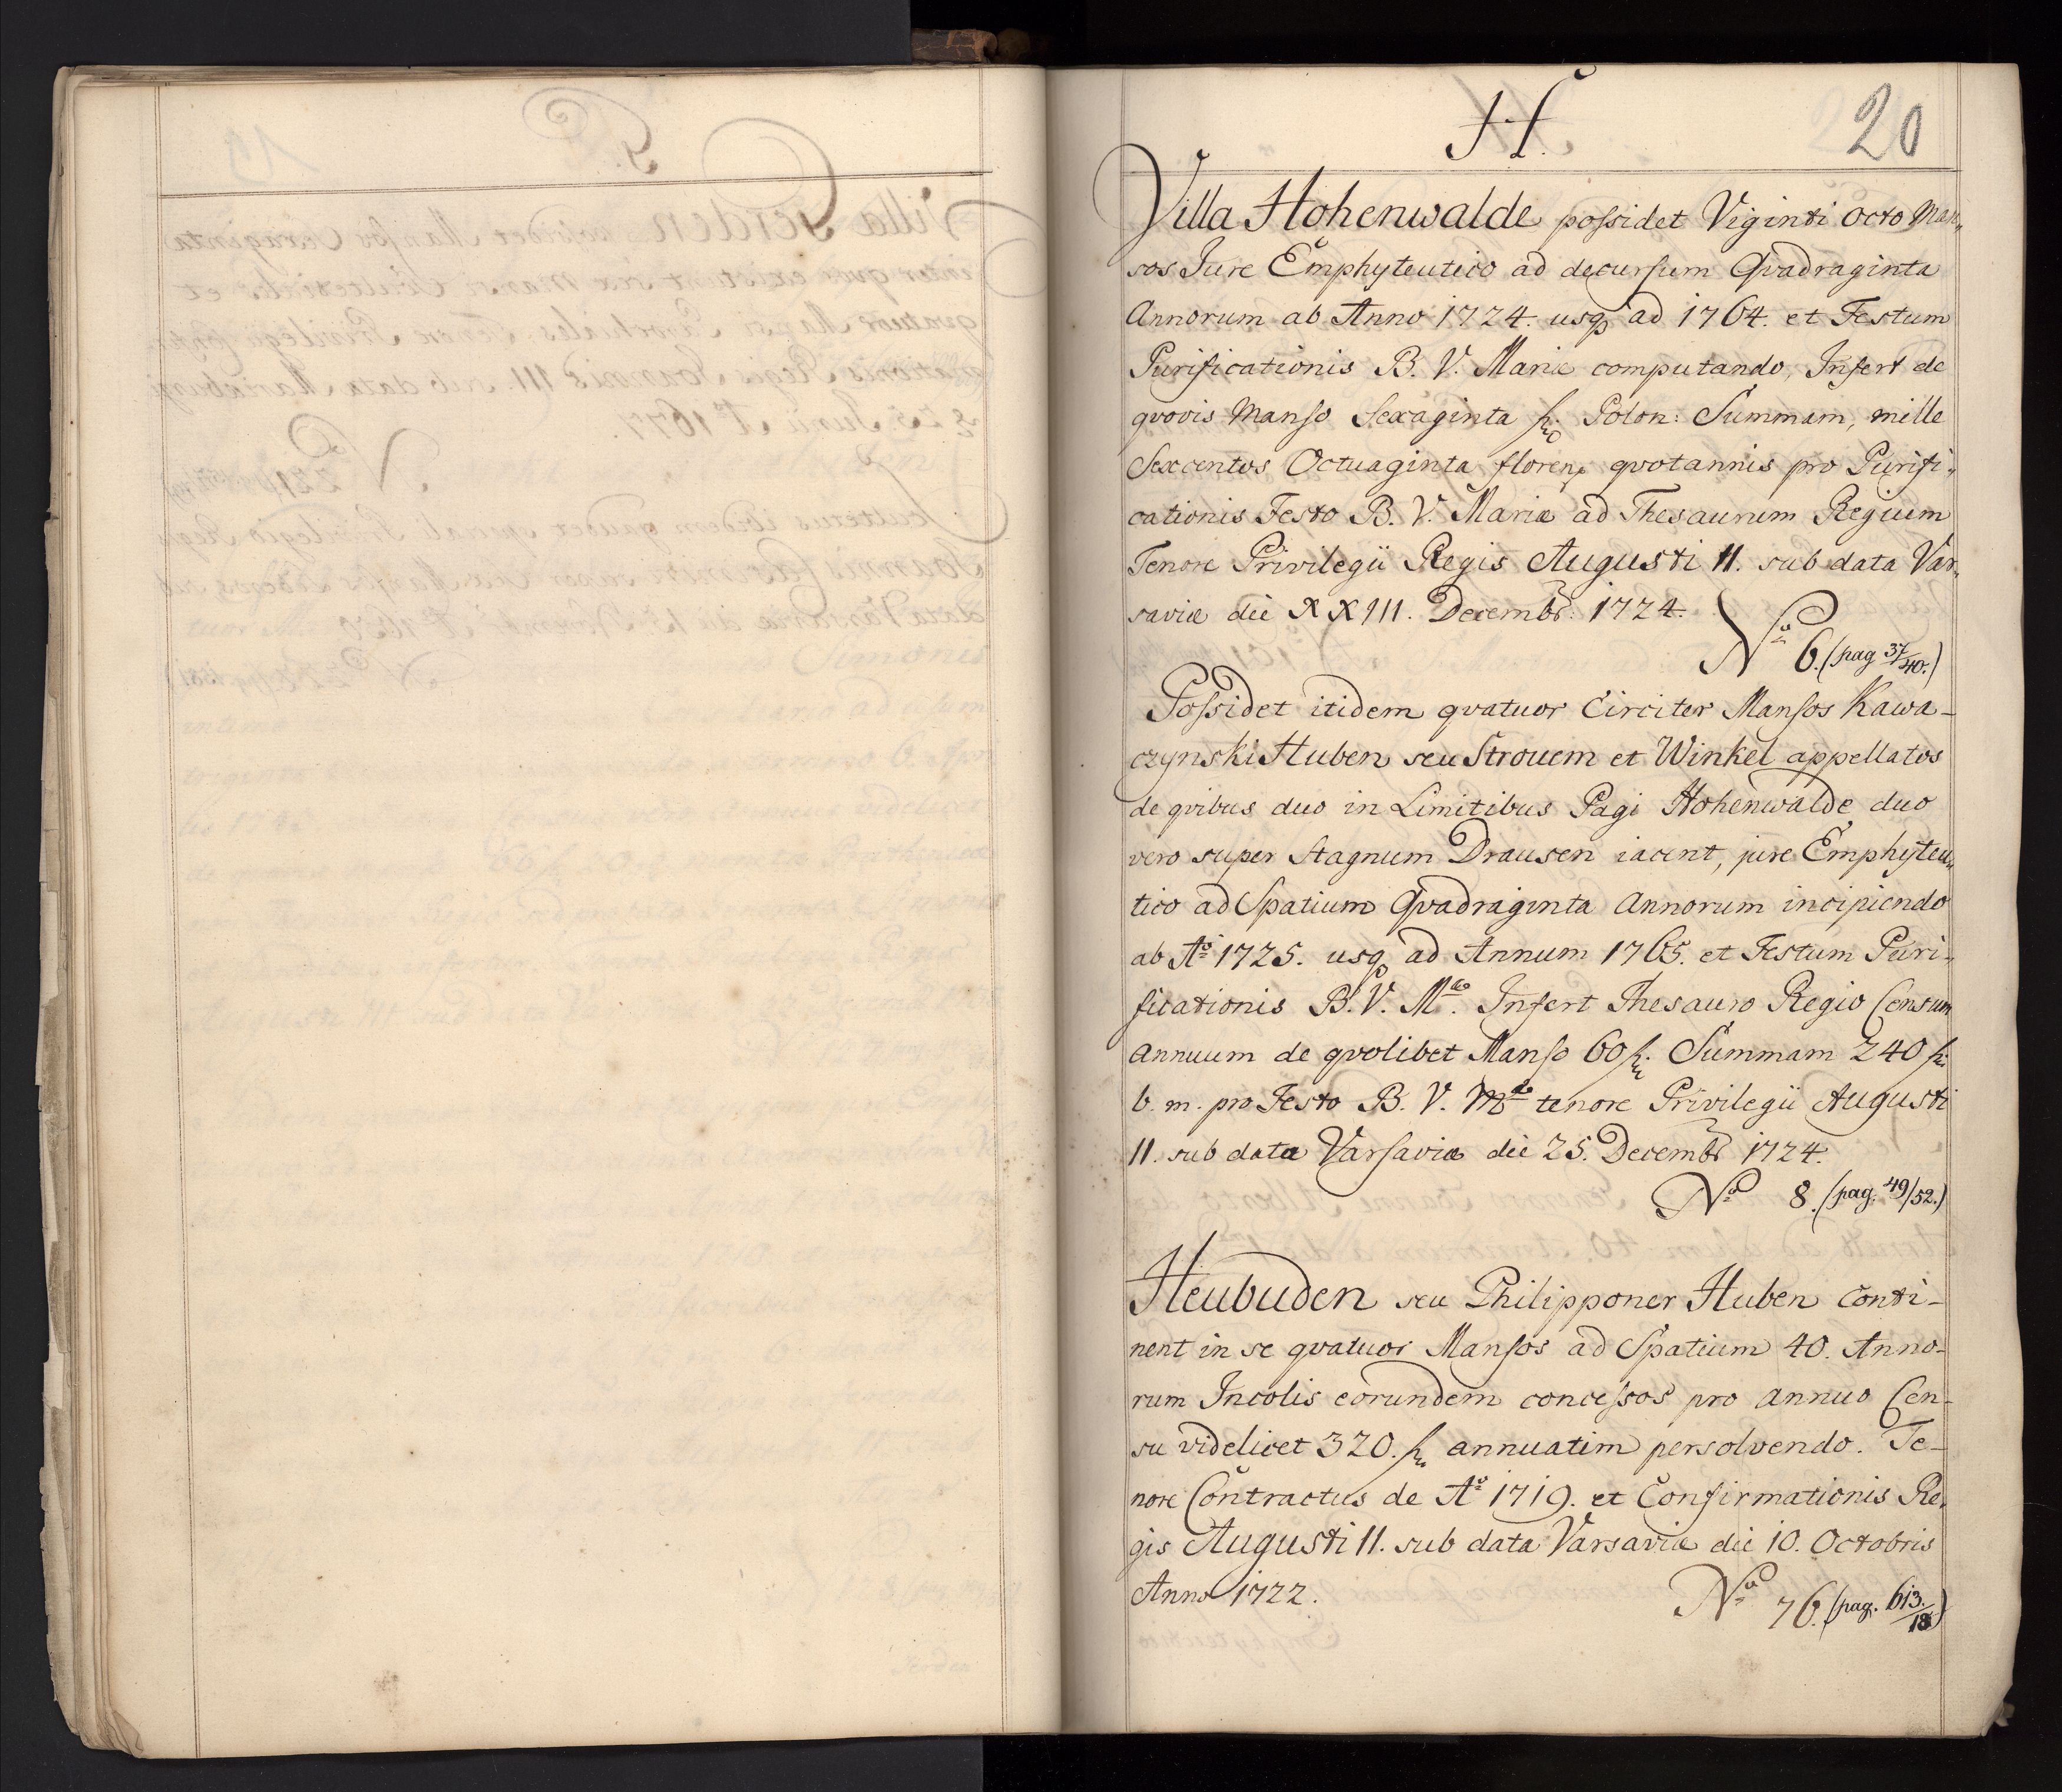 H.
20
Villa Hohenwalde possidet Viginti octo Man„
sos Jure Emphyteutico ad decursum Qvadraginta
Annorum ab Anno 1724. usq ad 1764. et Festum
Purificationis B. V. Mariæ computando, Infert de
qvovis Manso Sexaginta fl. Polon: Summam, mille
Sexcentos Octuaginta floren, qvotannis pro Purifi„
cationis Festo B. V. Mariæ ad Thesaurum Regium
Tenore Privilegii Regis Augusti II. sub data Var„
saviæ die XXIII. Decembr: 1724.
No 6. (pag 37/40.)
Possidet itidem qvatuor Circiter Mansos Kawa-
czynski Huben seu Strouem et Winkel appellatos
de qvibus duo in Limitibus Pagi Hohenwalde duo
vero super Stagnum Drausen iacent, jure Emphyteu„
tico ad Spatium Qvadraginta Annorum incipiendo
ab Ao 1725. usq ad Annum 1765. et Festum Puri„
ficationis B. V. Mæ. Infert Thesauro Regio Censum
Annuum de qvolibet Manso 60 fl. Summam 240 fl.
b. m. pro Festo B. V. Mæ tenore Privilegii Augusti
II. sub data Varsaviæ die 25. Decembr 1724.
No 8. (pag. 49/52.)
Heubuden seu Philipponer Huben Conti-
nent in se qvatuor Mansos ad Spatium 40. Anno-
rum Incolis eorundem concessos pro annuo Cen-
su videlicet 320. fl. annuatim persolvendo. Te-
nore Contractus de Ao 1719. et Confirmationis Re„
gis Augusti II. sub data Varsaviæ die 10. Octobris
Anno 1722.
No 76. (pag. 613./18)